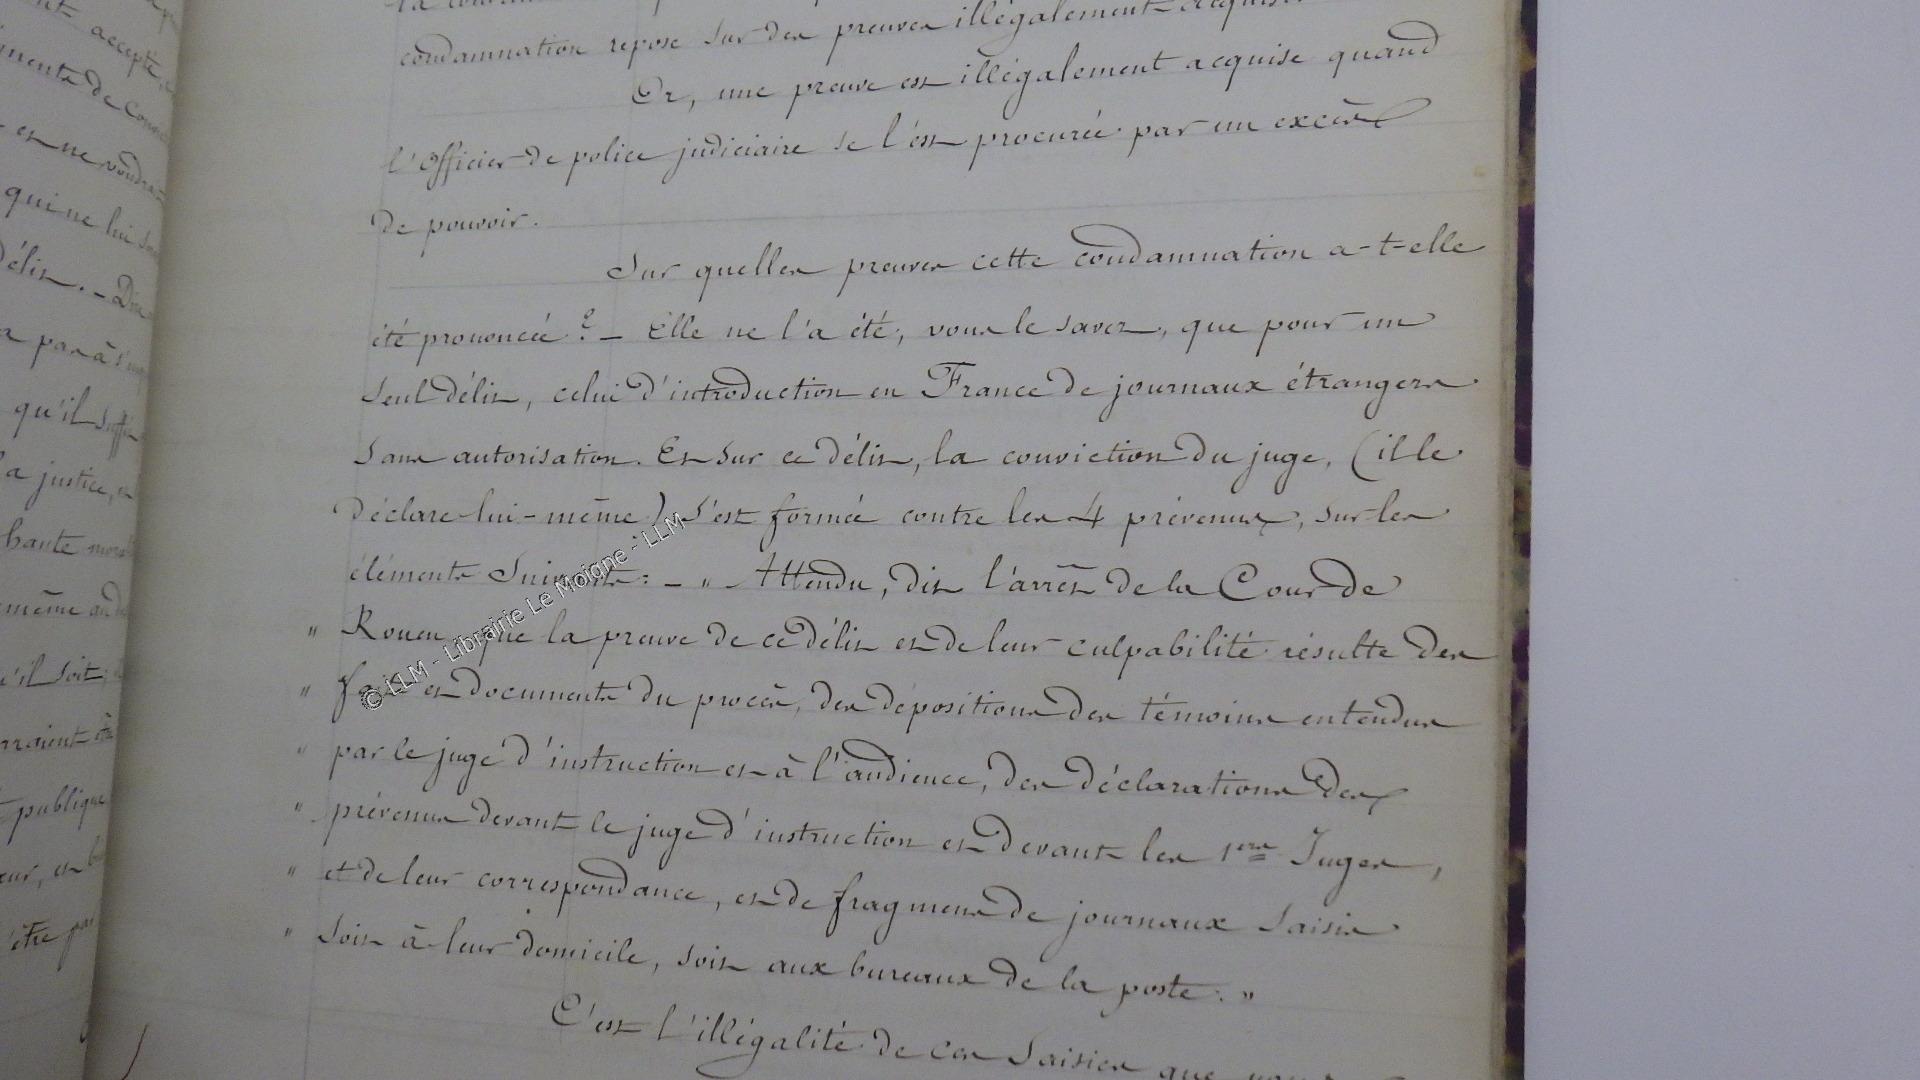 condamnation repose sur des preuves illégalement acquises
Or, une preuve est illégalement acquise quand
l'Officier de police judiciaire se l'est procurée par un excès
de pouvoir.
Sur quelles preuves cette condamnation a-t-elle
été prononcée ? — Elle ne l'a été, vous le savez, que pour un
seul délit, celui d'introduction en France de journaux étrangers
sans autorisation. Et sur ce délit, la conviction du juge, (il le
déclare lui-même) s'est formée contre les 4 prévenus, sur les
éléments suivants : — " Attendu, dit l'arrêt de la Cour de
" Rouen, que la preuve de ce délit et de leur culpabilité résulte des
" faits et documents du procès, des dépositions des témoins entendus
" par le juge d'instruction et à l'audience, des déclarations des
" prévenus devant le juge d'instruction et devant les 1ers Juges,
" et de leur correspondance, et de fragments de journaux saisis
" soit à leur domicile, soit aux bureaux de la poste. "
C'est l'illégalité de ces saisies que
© LLM - Librairie Le Moigne - LLM
accepté,
qui ne lui
délit. —
qu'il
la justice,
haute
même au
qu'il soit;
publique
être par